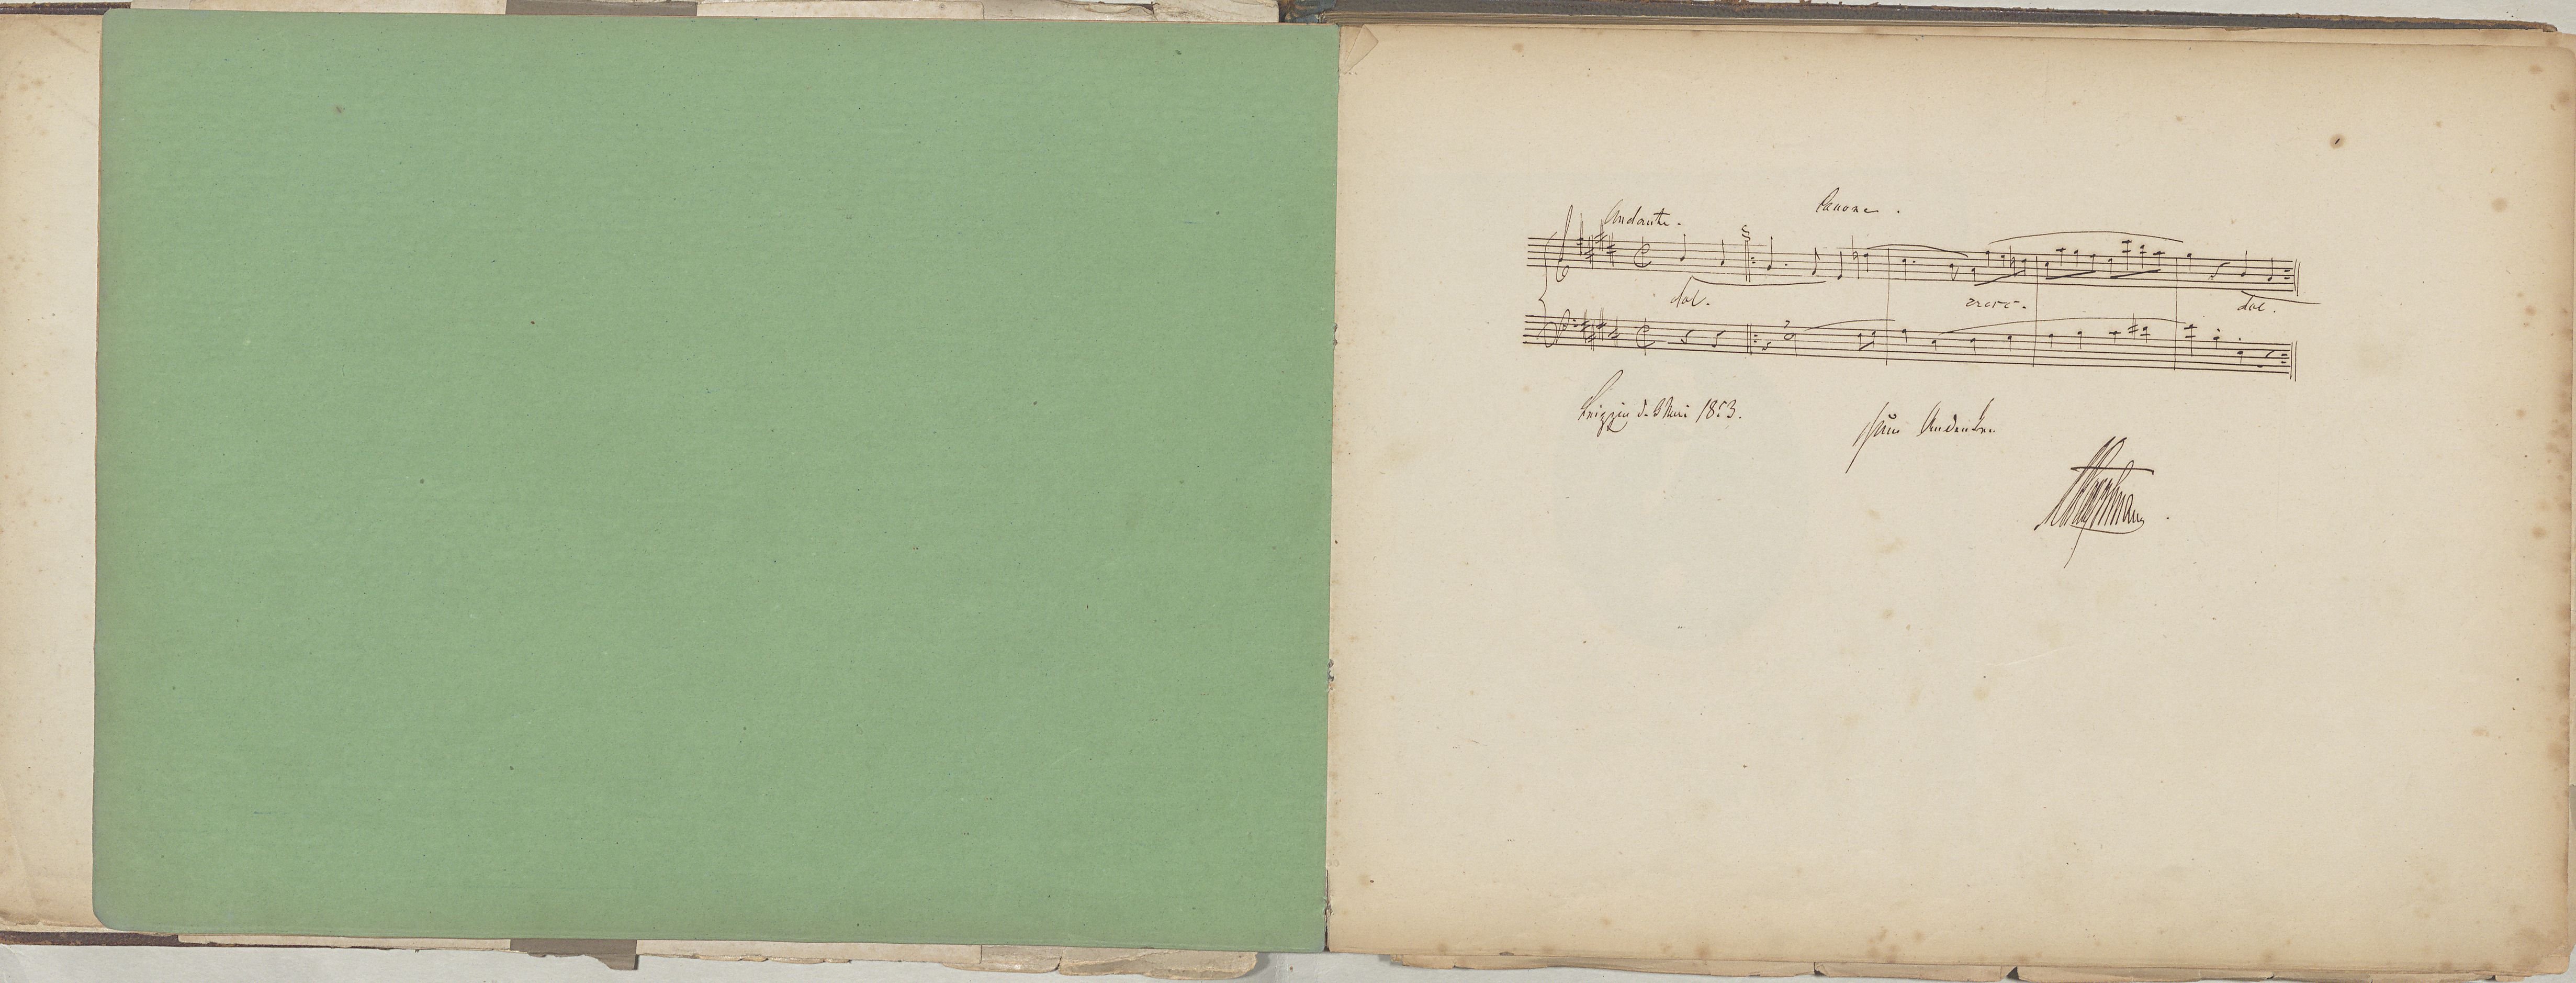 Andante.
Canone.
dol.
cresc.
dol.
Leipzig d. 3 Mai 1853.
zum Andenken